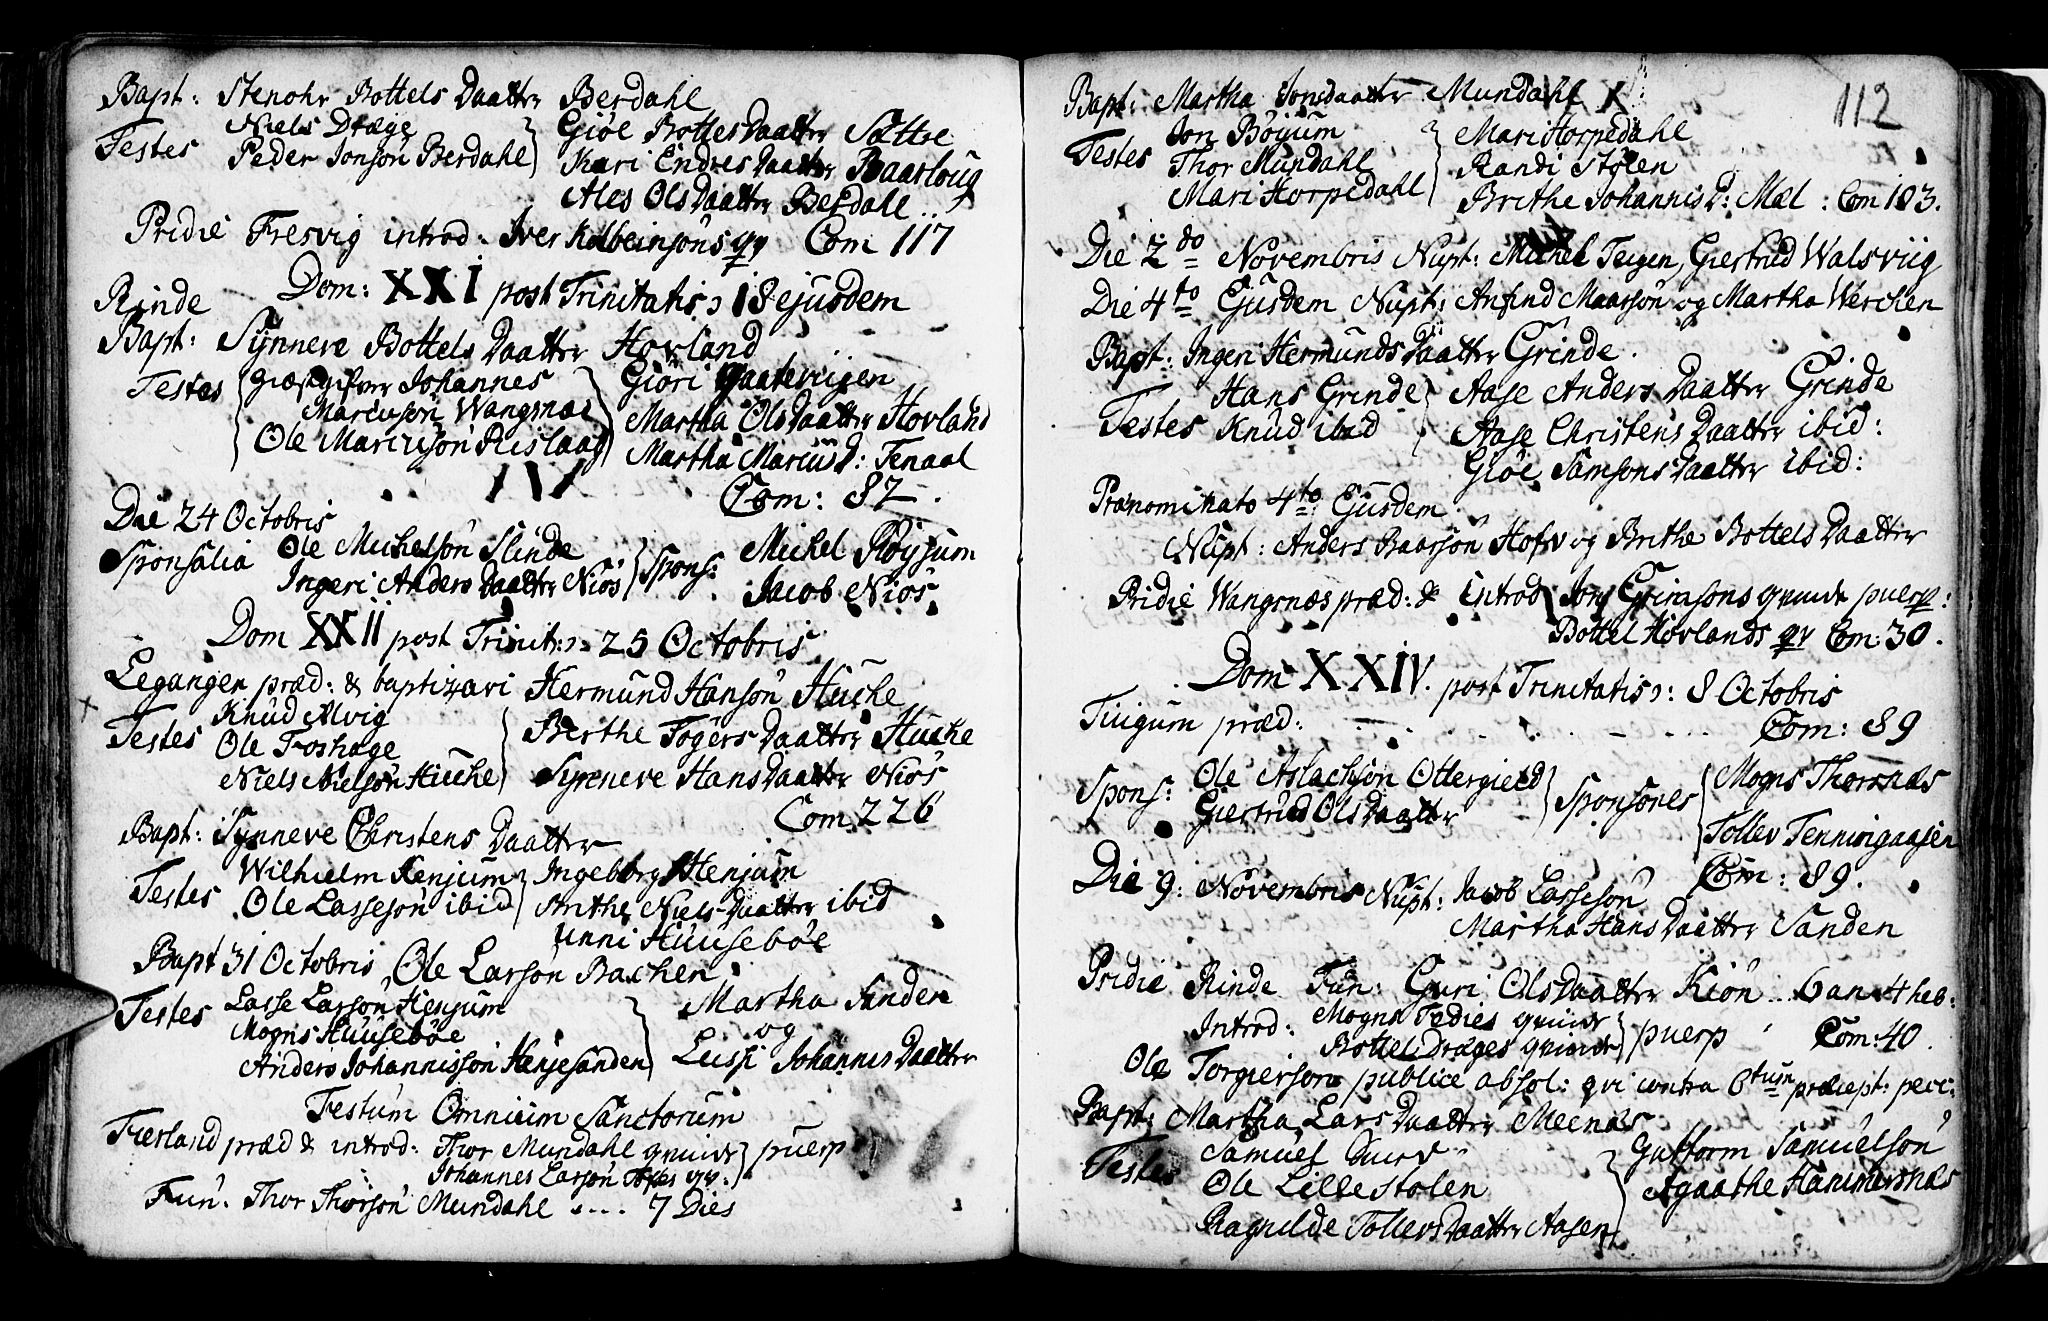 Bapt: Stenohr Bottels Daatter Berdahl
Testes Niels Dræge
Peder Jonson Berdahl
Giöe Bottes Daatter Sættre
Kari Endres Daatter Baarloug
Ales Ols Daatter Berdahl
Pridie Fresvig introd: Iver Kolbeinsons qv Com 117
Dom: XXI post Trinitatis 18 ejusdem
Rinde
Bapt: Synneve Bottels Daatter Hovland
Testes Giæstgifver Johannes
Marcuson Wangsnæs
Ole Marcuson Rislaag
Giöri Gaateviigen
Martha Ols Daatter Hovland
Martha Marcus D: Tenaal
Com: 87.
Die 24 Octobris
Sponsalia Ole Michelson Slinde
Ingeri Anders Daatter Niös
Spons: Michel Röysum
Jacob Niös
Dom XXII post Trinit: 25 Octobris
Leganger præd: & baptizavi Hermund Hanson Huche
Testes Knud Alvig
Ole Froshage
Niels Nielson Huche
Berthe Togers Daatter Huche
Syneneve Hans Daatter Niös
Com 226
Bapt: Synneve Christens Daatter
Testes Wilhielm Henjum
Ole Lasseson ibid
Ingeborg Henjum
Anthe Niels Daatter ibid
Unni Huusebøe
Bapt 31 Octobris Ole Larson Bachen
Testes Lasse Larson Henjum
Mogns Huusebøe
Anders Johannisson Henjesanden
Martha Sunden
og
Leussi Johannis Daatter
Festum Omnium Sanctorum
Fierland præd & introd: Thor Mundahl qvinde
Johannes Larson qv:
puerp
Fun: Thor Thorson Mundahl .... 7 Dies
112
Bapt: Martha Jonsdaatter Mundahl X
Testes Jon Böyum
Thor Mundahl
Mari Horpedahl
Mari Horpedahl
Randi Stölen
Brithe Johannis D: Mæl: Com 103.
Die 2do Novembris Nupt: Michel Teigen, Giertrud Walsviig
Die 4to Ejusdem Nupt: Anfind Maarson og Martha Werchen
Bapt: Ingeri Hermunds Daatter Grinde.
Testes Hans Grinde
Knud ibid
Aase Anders Daatter Grinde
Aase Christens Daatter ibid:
Giöe Samsons Daatter ibid:
Prænominato 4to Ejusdem
Nupt: Anders Baarson Hofv og Brithe Bottels Daatter
Pridie Wangsnæs præd: & Introd Jons Grimsons qvinde puerp:
Bottel Hovlands qv Com: 30.
Dom XXIV. post Trinitatis: 8 Octobris
Tiugum præd:
Com: 89
Spons: Ole Aslachson Ottergield
Giertrud Ols Daatter
Sponsores Mogns Thorsnæs
Tollev Tenningaasen
Com: 89.
Die 9: Novembris Nupt: Jacob Lasseson
Martha Hans Daatter Sanden
Pridie Rinde Fun: Guri Ols Daatter Kiön .. 6 an 4 heb:
Introd: Mogns Tedies qvinde
Bottel Dræges qvinde
puerp Com: 40.
Ole Torgierson publice absol: qvi contra 6tum præcept: pecc:
Bapt: Martha Lars Daatter Meenæs
Testes Samuel
Ole Lille Stolen
Ragnilde Tollevs Daatter Aasen
Guttorm Samuelson
Agaathe Hammersnæs